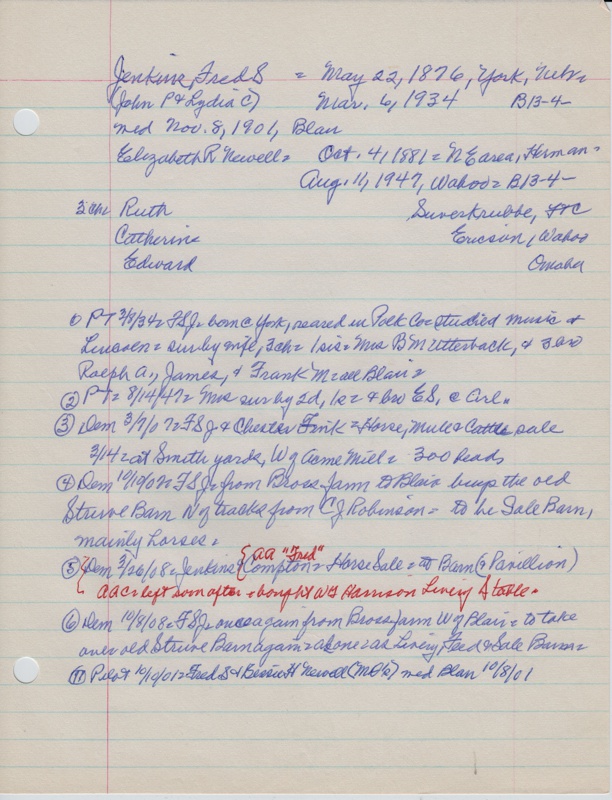 Jenkins, Fred S = May 22, 1876, York, Neb=
(John P & Lydia C) Mar. 6, 1934 B13-4-
med Nov. 8, 1901, Blair
Elizabeth R Newell= Oct. 4, 1881 = N Earea, Herman=
Aug. 11, 1947, Wahoo= B13-4-
3 ch= Ruth Suverkrubbe, FTC
Catherine Ericson, Wahoo
Edward Omaha
① PT 3/8/34= FSJ= born @ York, reared in Polk Co= studied music @
Lincoln= sur by wife, 3 ch= 1 sis= Mrs B M Utterback, & 3 bro
Ralph A., James, & Frank M= all Blair=
② PT= 8/14/47= Mrs sur by 2d, 1s= & bro E S, @ Arl=
③ Dem 3/7/07= FSJ & Chester Fink= Horse, Mule & Cattle sale
3/14= at Smith yards, W of Acme Mill= 300 heads
④ Dem 10/19/07= FSJ= from Bross farm to Blair buys the old
Struve Barn N of tracks from C J Robinson= to be Sale Barn,
mainly horses=
{AA "Fred"
⑤ Dem 3/26/08= Jenkins & Compton= Horse Sale= @ Barn (& Pavillion)
AAC= left soon after & bought W G Harrison Livery Stable=
⑥ Dem 10/8/08= FSJ= once again from Bross farm W of Blair= to take
over old Struve Barn again= alone= as Livery, Feed & Sale Barn=
⑪ Pilot 10/19/01= Fred S & Bessie H Newell (MO's) med Blair 10/8/01